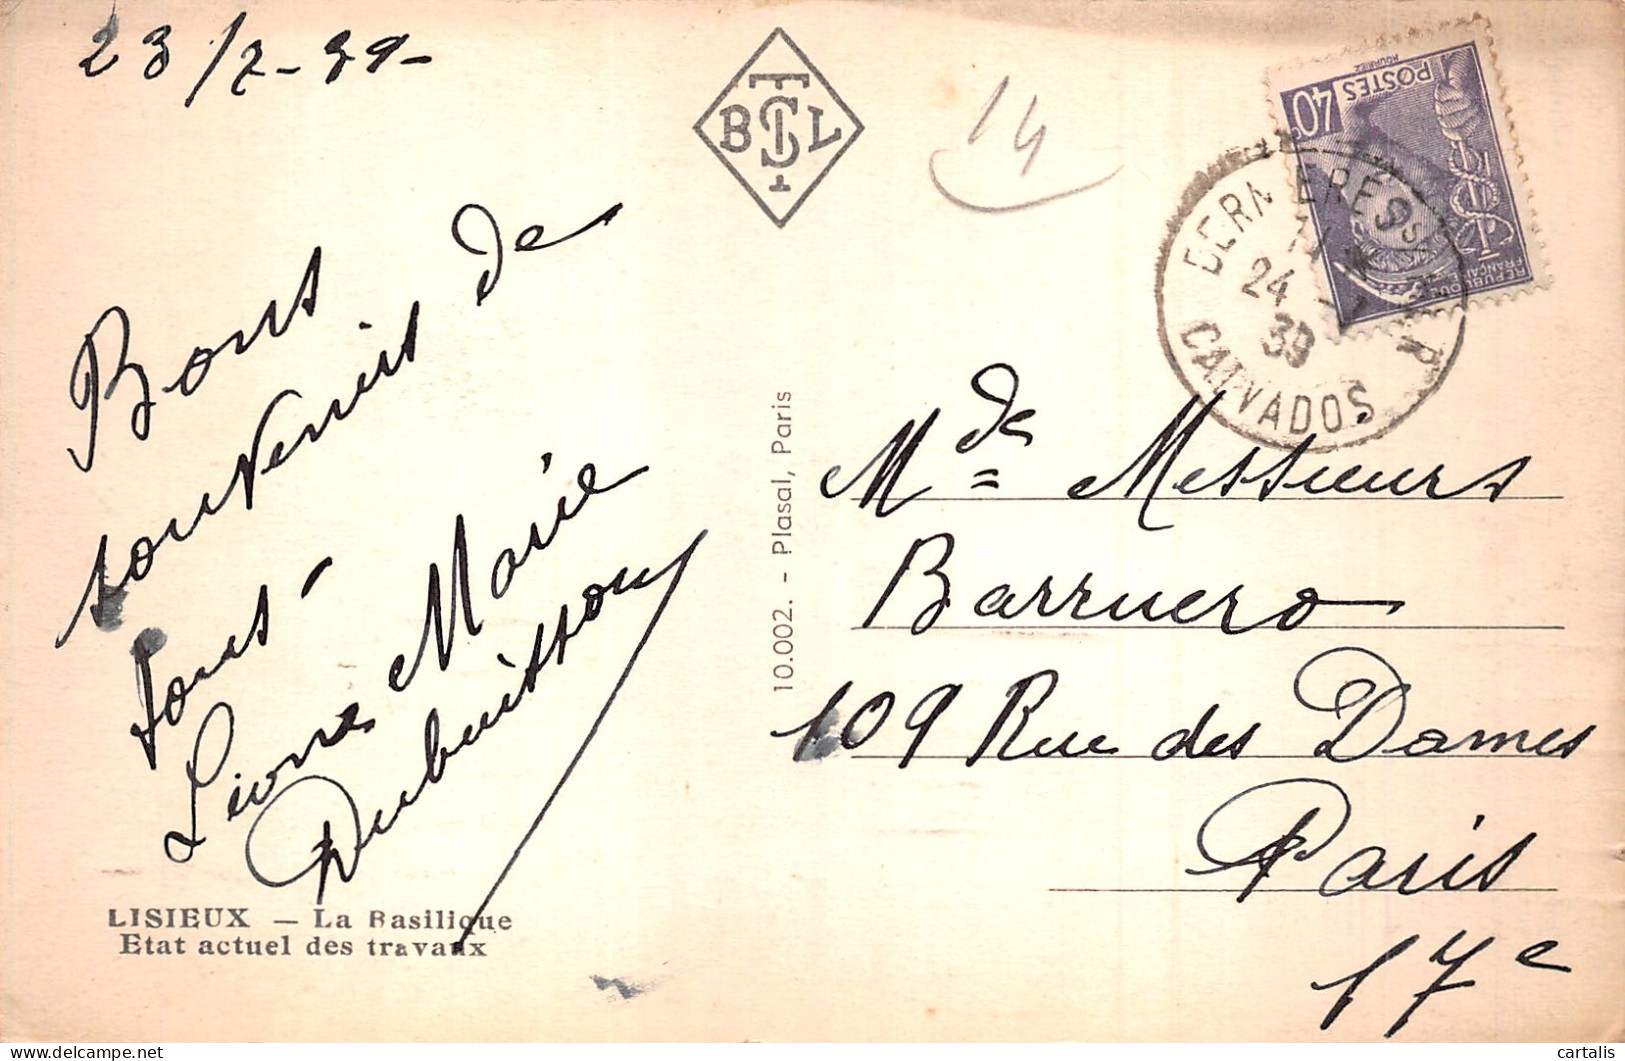 23/7-39-
Bons
souvenirs de
tous -
Marie
Dubuisson
LISIEUX — La Basilique
Etat actuel des travaux
10.002. - Plasal, Paris
BTSL
14
40c
POSTES
REPUBLIQUE
FRANÇAISE
BERNIÈRES S
24 -7
39
CALVADOS
Mde Messieurs
Barruero
109 Rue des Dames
Paris
17e
cartalis